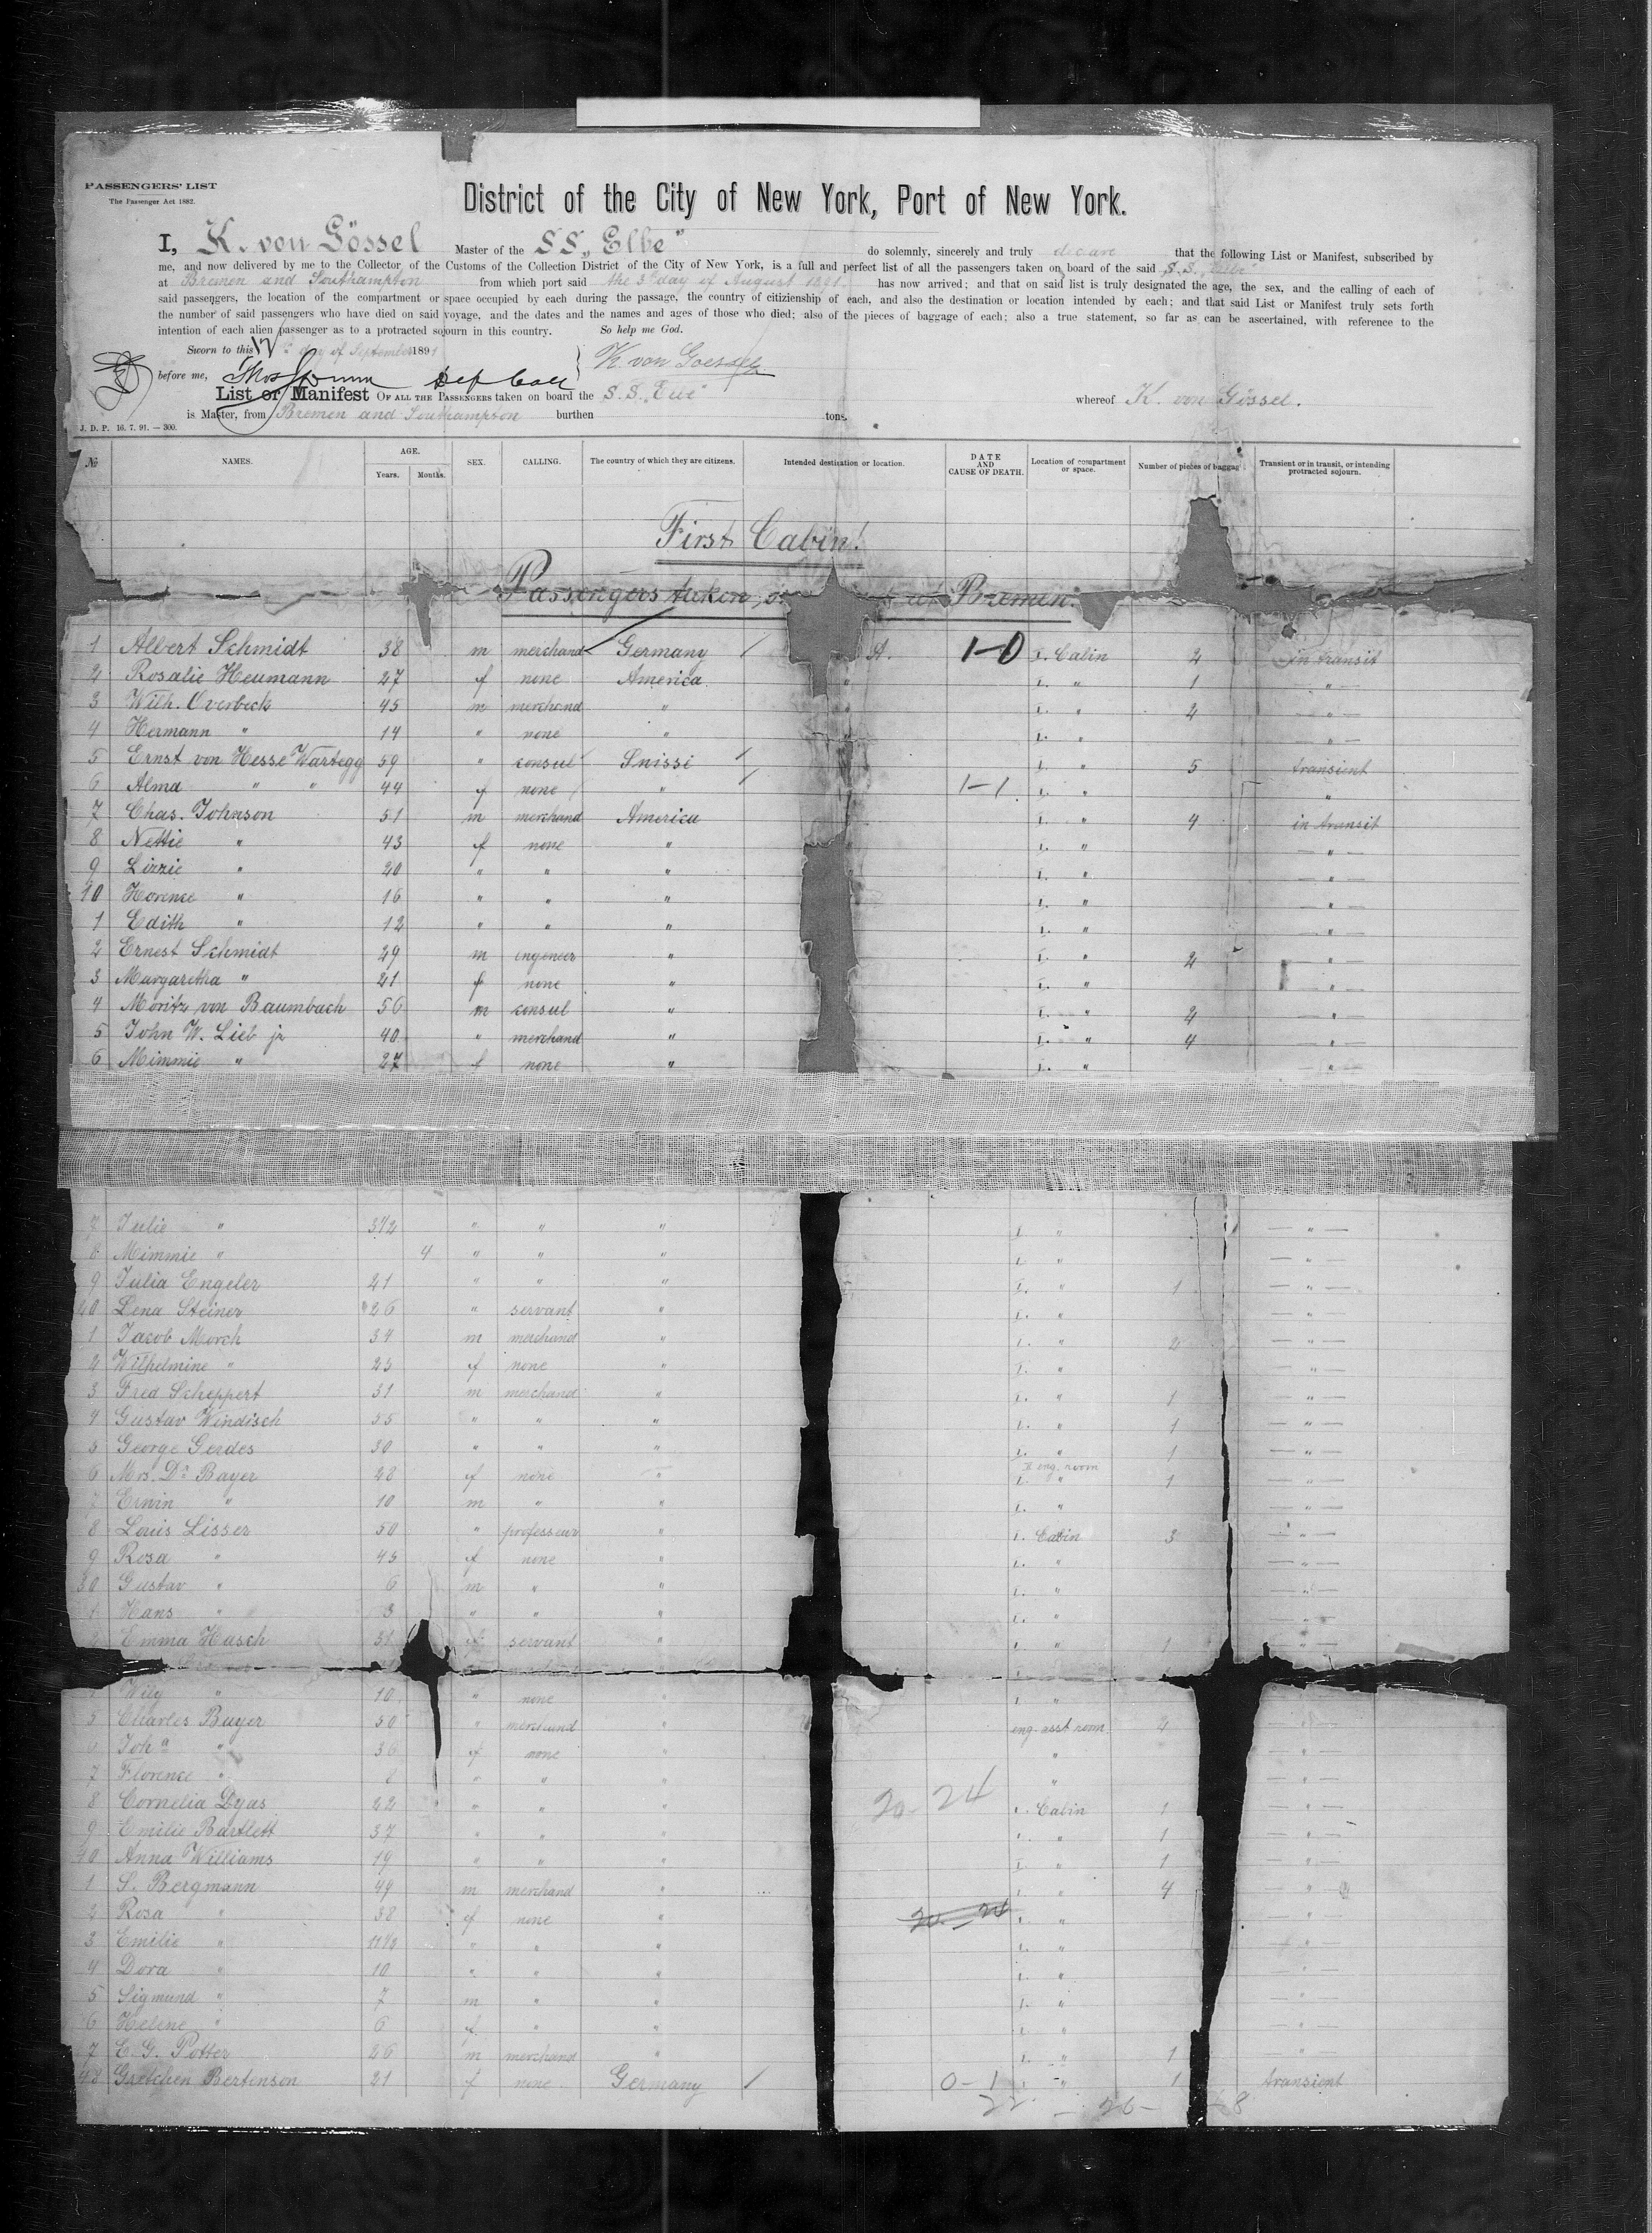 PASSENGERS' LIST
The Passenger Act 1882.
District of the City of New York, Port of New York.
I, K. von Gössel Master of the S.S. „Elbe" do solemnly, sincerely and truly that the following List or Manifest, subscribed by
me, and now delivered by me to the Collector of the Customs of the Collection District of the City of New York, is a full and perfect list of all the passengers taken on board of the said S.S. „Elbe"
at Bremen and Southampton from which port said the 3d day of August 1891 has now arrived; and that on said list is truly designated the age, the sex, and the calling of each of
said passengers, the location of the compartment or space occupied by each during the passage, the country of citizienship of each, and also the destination or location intended by each; and that said List or Manifest truly sets forth
the number of said passengers who have died on said voyage, and the dates and the names and ages of those who died; also of the pieces of baggage of each; also a true statement, so far as can be ascertained, with reference to the
intention of each alien passenger as to a protracted sojourn in this country. So help me God.
Sworn to this day of September 1891
before me, K. von Goessel
List or Manifest OF ALL THE PASSENGERS taken on board the S.S. „Elbe" whereof K. von Gössel.
is Master, from Bremen and Southampton burthen tons.
J. D. P. 16. 7. 91. — 300.
№ NAMES. AGE. Years. Months. SEX. CALLING. The country of which they are citizens. Intended destination or location. DATE AND CAUSE OF DEATH. Location of compartment or space. Number of pieces of baggag Transient or in transit, or intending protracted sojourn.
First Cabin!
Passengers taken at Bremen.
1 Albert Schmidt 38 m merchand Germany A. 1-0 I. Cabin 2 in transit
2 Rosalie Heumann 27 f none America " I. " 1 — " —
3 Wilh. Overbeck 45 m merchand " " I. " 2 — " —
4 Hermann " 14 " none " " I. " — " —
5 Ernst von Hesse Wartegg 59 " consul Snissi I. " 5 transient
6 Alma " " 44 f none " 1-1. I. " "
7 Chas. Johnson 51 m merchand America I. " 4 in transit
8 Nettie " 43 f none " I. " — " —
9 Lizzie " 20 " " " I. " — " —
10 Florence " 16 " " " I. " — " —
1 Edith " 12 " " " I. " — " —
2 Ernest Schmidt 29 m engeneer " I. " 2 — " —
3 Margaretha " 21 f none " I. " — " —
4 Moritz von Baumbach 56 m consul " I. " 2 — " —
5 John W. Lieb jr 40 " merchand " I. " 4 — " —
6 Mimmie " 27 f none " I. " "
7 Julie " " " " I. " — " —
8 Mimmie " 4 " " " I. " — " —
9 Julia Engeler 21 " " " I. " 1 — " —
20 Lena Steiner 26 " servant " I. " — " —
1 Jacob March 34 m merchand " I. " 2 — " —
2 Wilhelmine " 23 f none " I. " — " —
3 Fred Scheppert 31 m merchand " I. " 1 — " —
4 Gustav Windisch 55 " " " I. " 1 — " —
5 George Gerdes 30 " " " I. " 1 — " —
6 Mrs. Dr Bayer 28 f none " II eng. room I. " 1 — " —
7 Erwin " 10 m " " I. " — " —
8 Louis Lisser 50 " professeur " I. Cabin 3 — " —
9 Rosa " 45 f none " I. " — " —
30 Gustav " 6 m " " I. " — " —
1 Hans " 3 " " " I. " — " —
2 Emma Hasch 31 f servant " I. " 1 — " —
4 Wily " 10 " none " I. " — " —
5 Charles Buyer 30 " merchand " eng. asst room 2 — " —
6 Joha " 36 f none " " — " —
7 Florence " " " " " — " —
8 Cornelia Dyas 22 " " " 20-24 I. Cabin 1 — " —
9 Emilie Bartlett 37 " " " I. " 1 — " —
40 Anna Williams 19 " " " I. " 1 — " —
1 S. Bergmann 49 m merchand " I. " 4 — " —
2 Rosa " 38 f none " 20-24 I. " — " —
3 Emilie " " " " I. " — " —
4 Dora " 10 " " " I. " — " —
5 Sigmund " 7 m " " I. " — " —
6 Helene " 6 f " " I. " — " —
7 E. G. Potter 26 m merchand " I. " 1 — " —
48 Gretchen Bertenson 21 f none Germany 0-1 I. " 1 transient
22 - 26 - 48